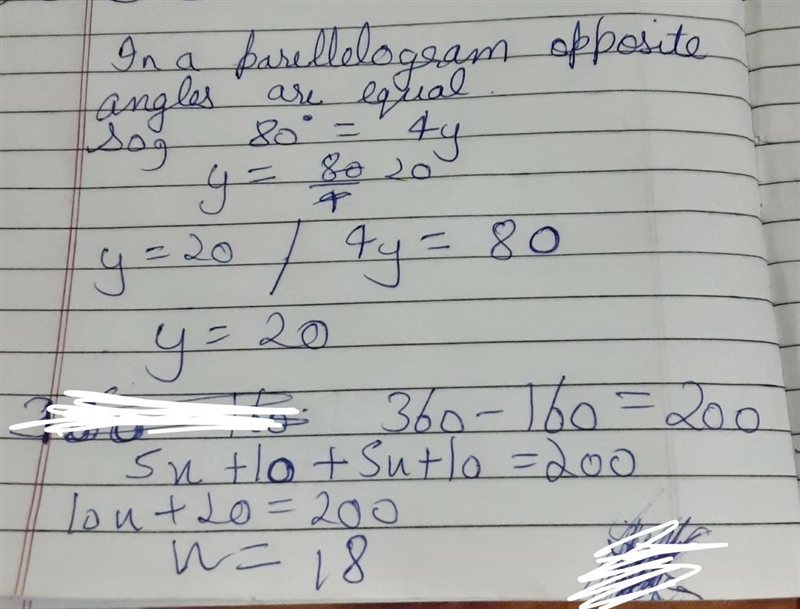 In a parellelogram opposite
angles are equal.
So, 80° = 4y
y = 80/4 20
y = 20 / 4y = 80
y = 20
360 - 160 = 200
5x + 10 + 5x + 10 = 200
10x + 20 = 200
x = 18